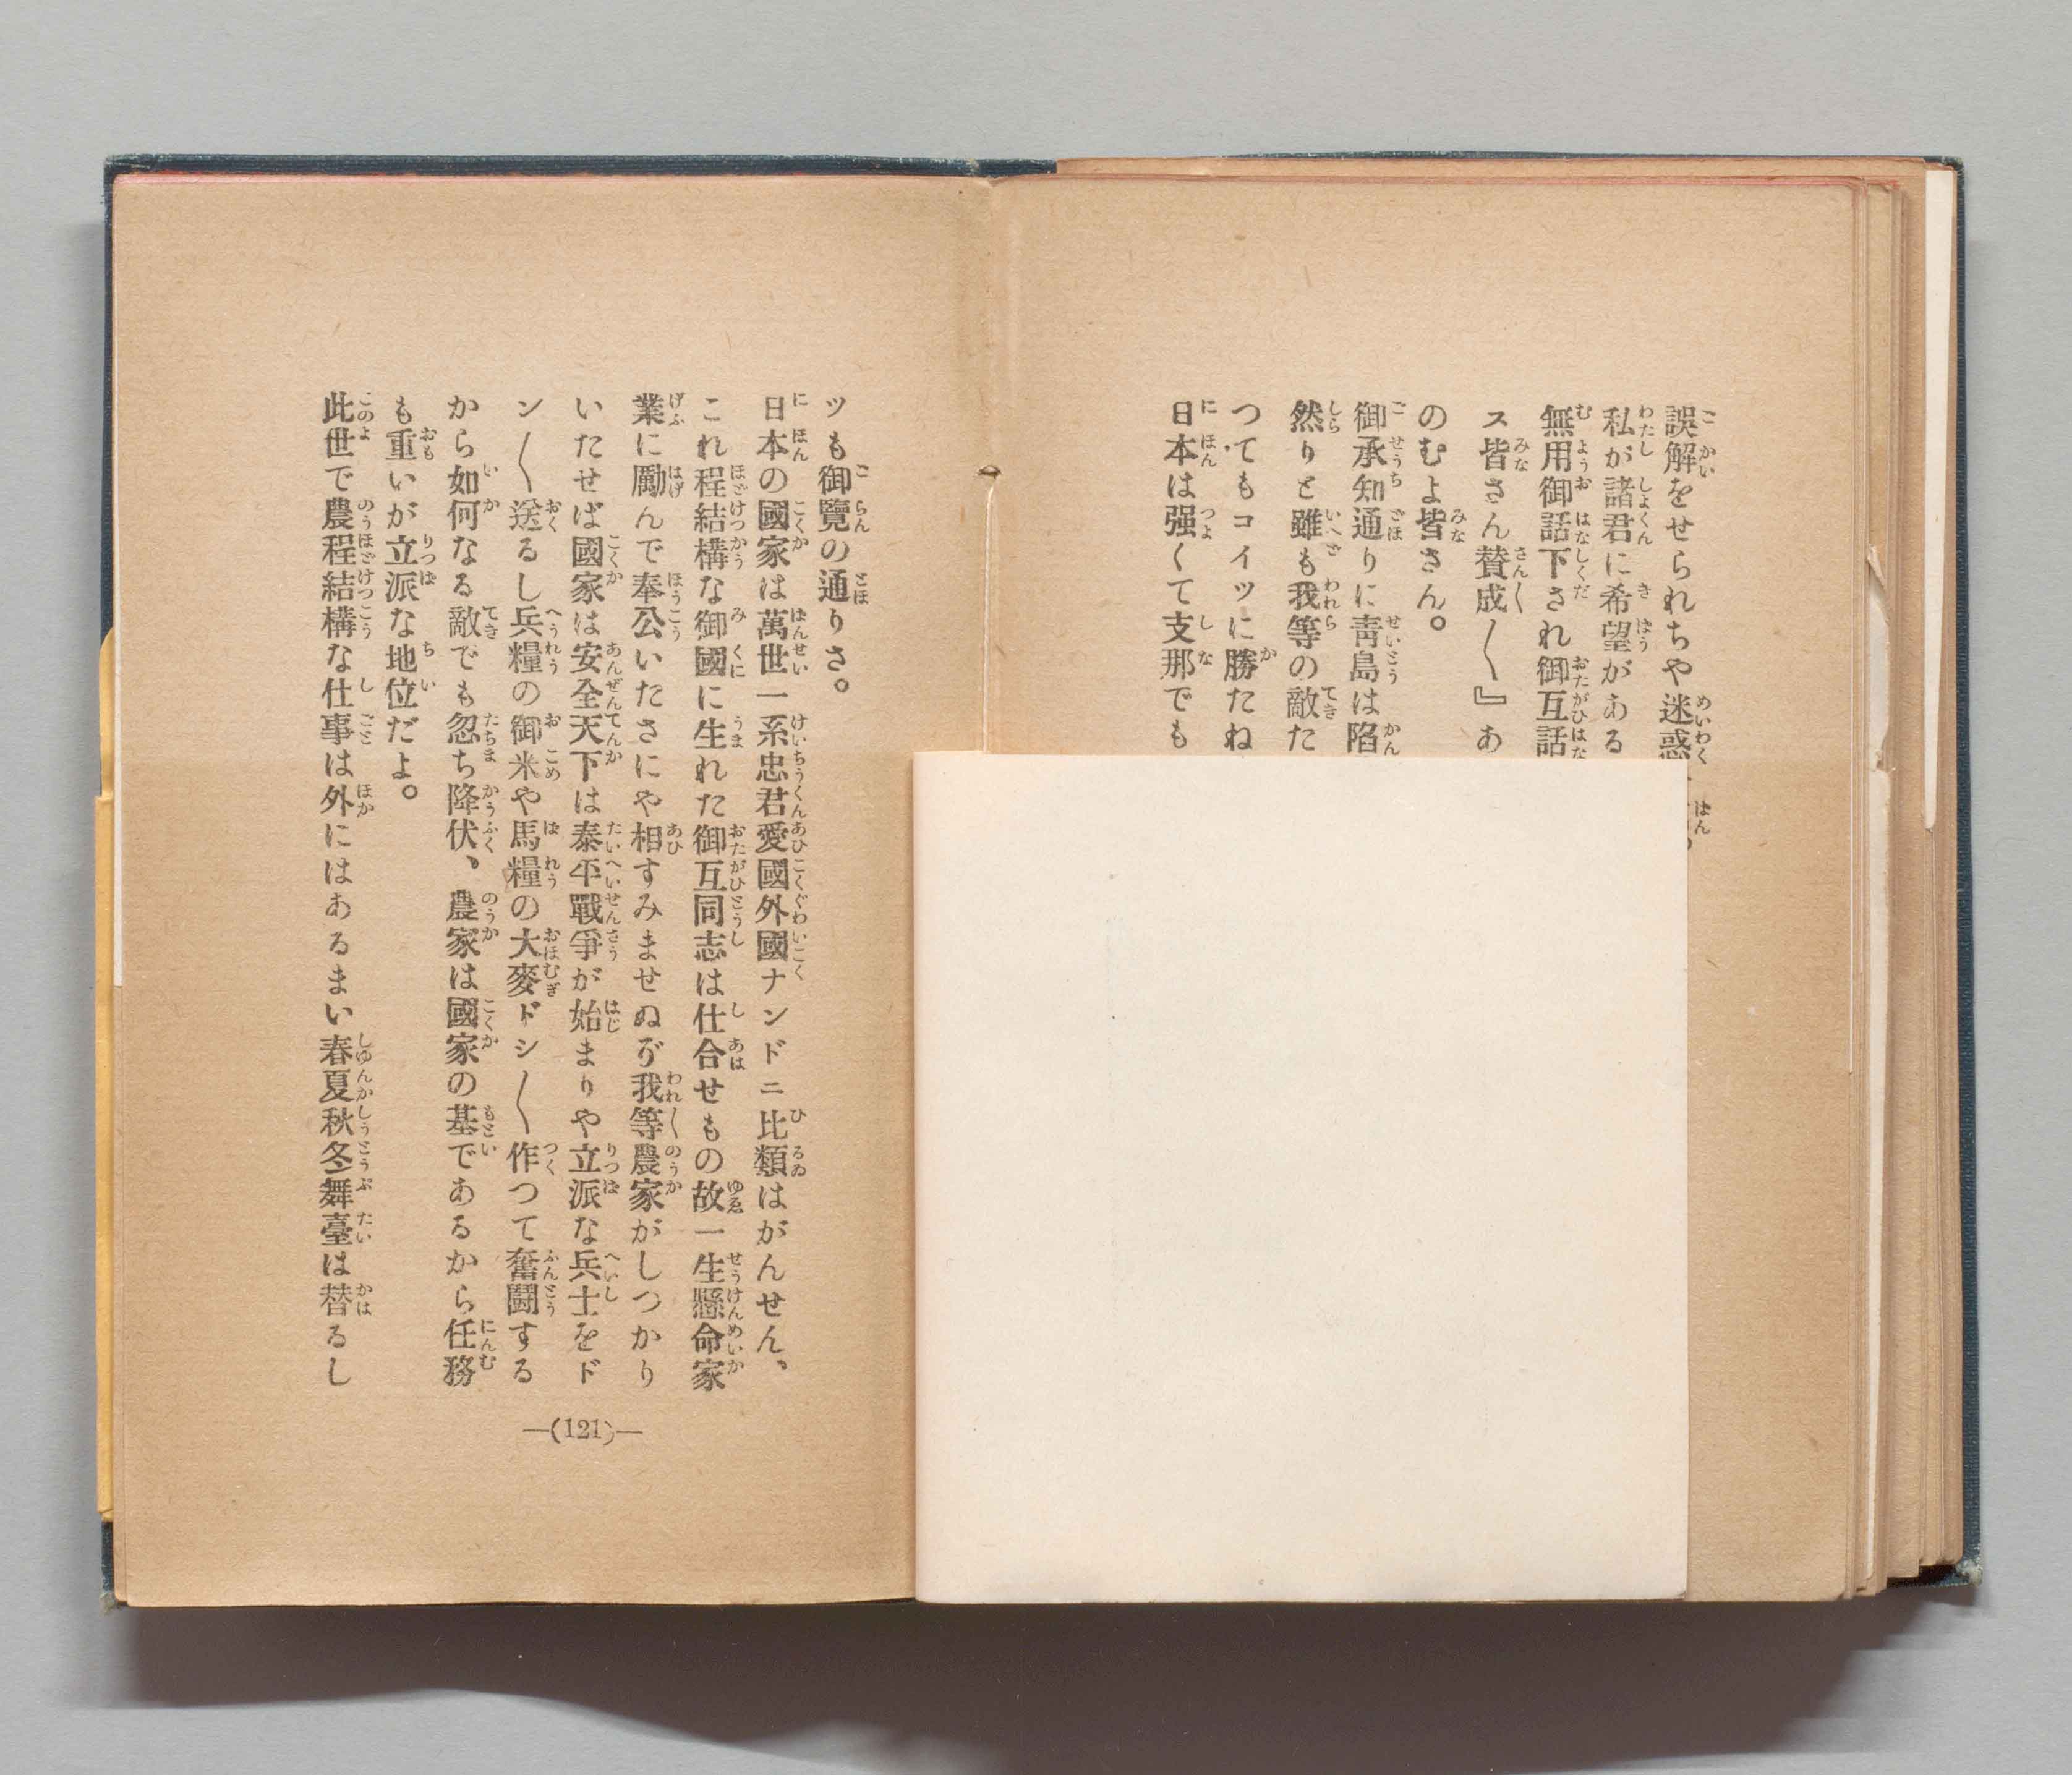 誤解をせられちや迷惑
私が諸君に希望がある
無用御話下され御互話
ス皆さん賛成〳〵』あ
のむよ皆さん。
御承知通りに靑島は陷
然りと雖も我等の敵た
つてもコイツに勝たね
日本は强くて支那でも
ツも御覽の通りさ。
日本の國家は萬世一系忠君愛國外國ナンドニ比類はがんせん、
これ程結構な御國に生れた御互同志は仕合せもの故一生懸命家
業に勵んで奉公いたさにや相すみませぬが我等農家がしつかり
いたせば國家は安全天下は泰平戰爭が始まりや立派な兵士をド
ン〳〵送るし兵糧の御米や馬糧の大麥ドシ〳〵作つて奮鬪する
から如何なる敵でも忽ち降伏、農家は國家の基であるから任務
も重いが立派な地位だよ。
此世で農程結構な仕事は外にはあるまい春夏秋冬舞臺は替るし
—(121)—